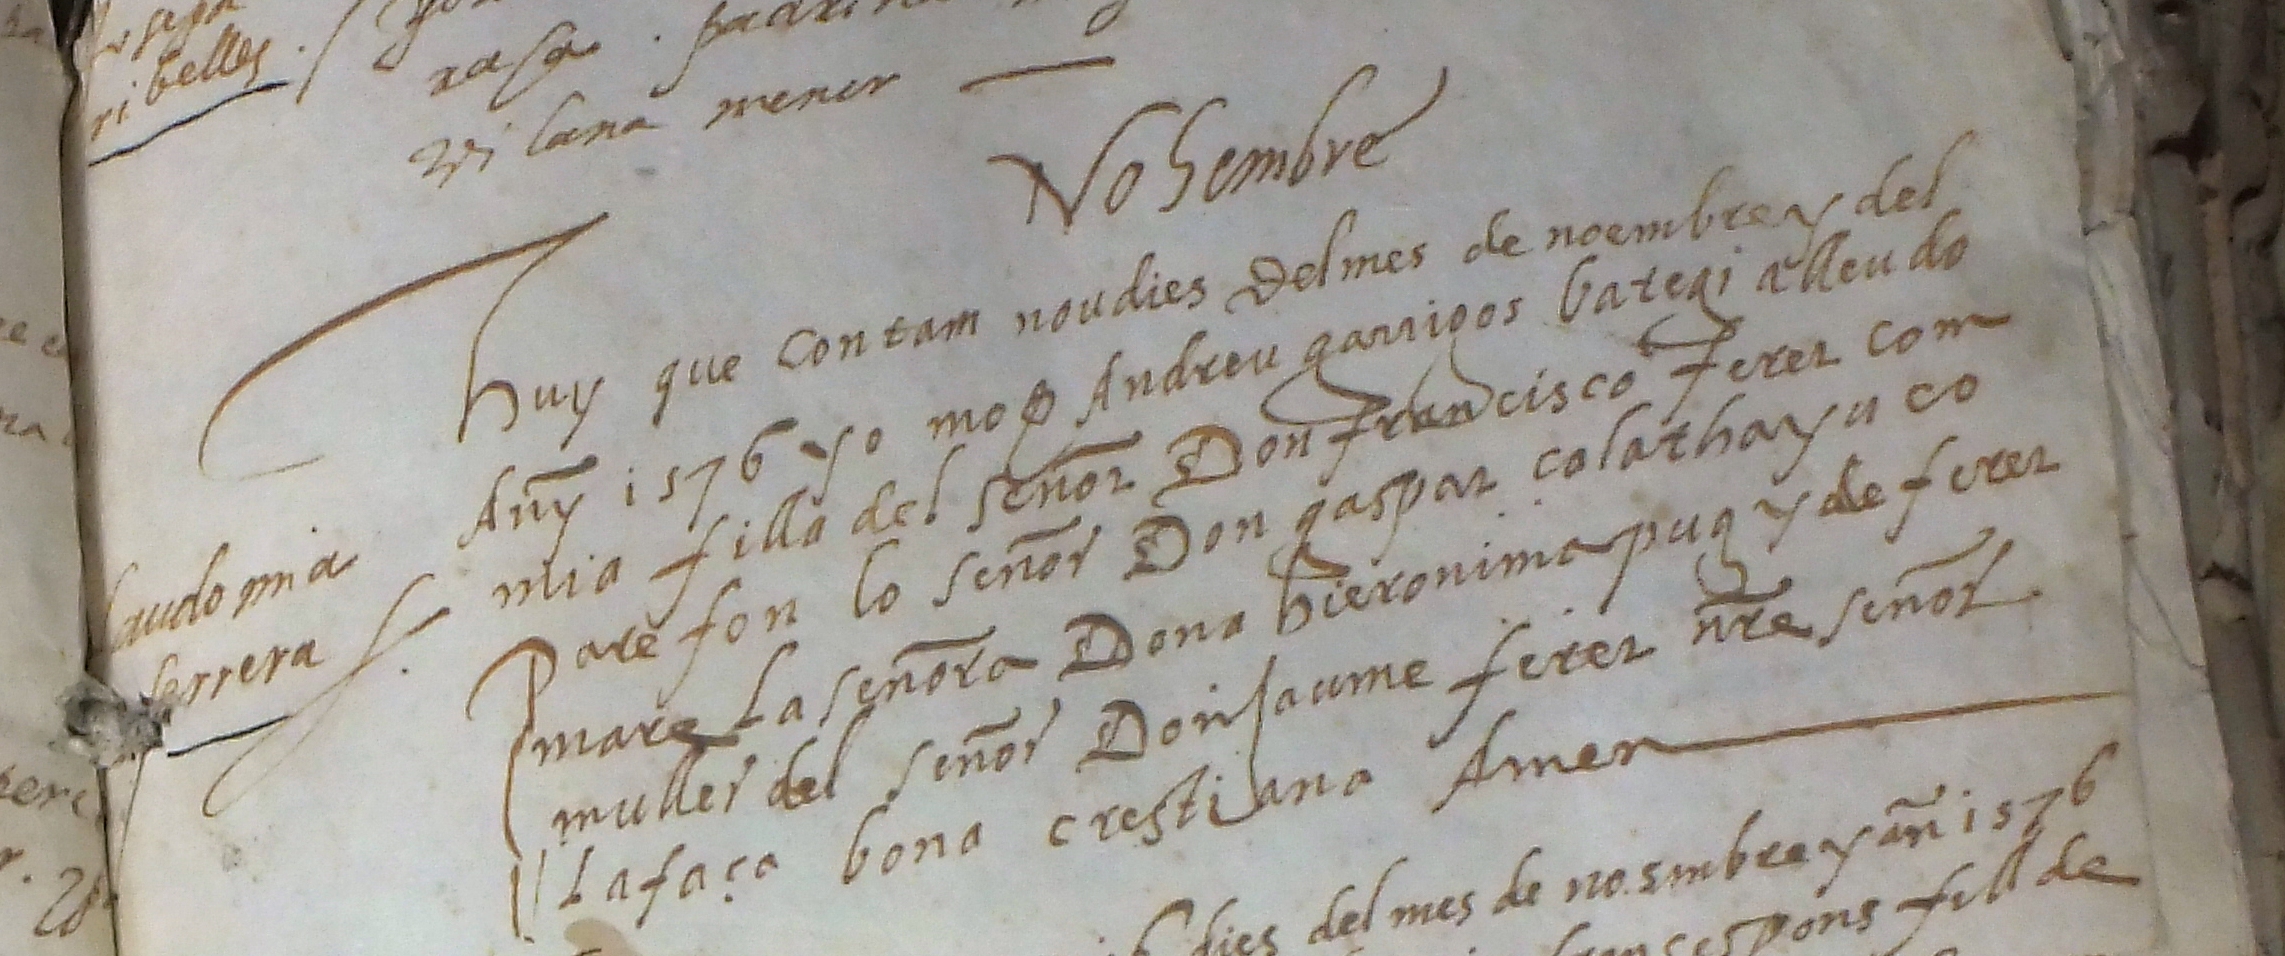 ribelles
casa . padrina
vilana menor
Nohembre
huy que contam nou dies del mes de noembre y del
Añy 1576 yo mo Andreu garrigos bategi a lleudo
mia filla del señor Don francisco ferer com
Pare fon lo señor Don gaspar calathayu co
mare La señora Dona hieronima pug y de ferer
muller del señor Don Jaume ferer nre señor
La faça bona crestiana Amen
laudomia
ferrera
dies del mes de noembre y añ 1576
pons fill de